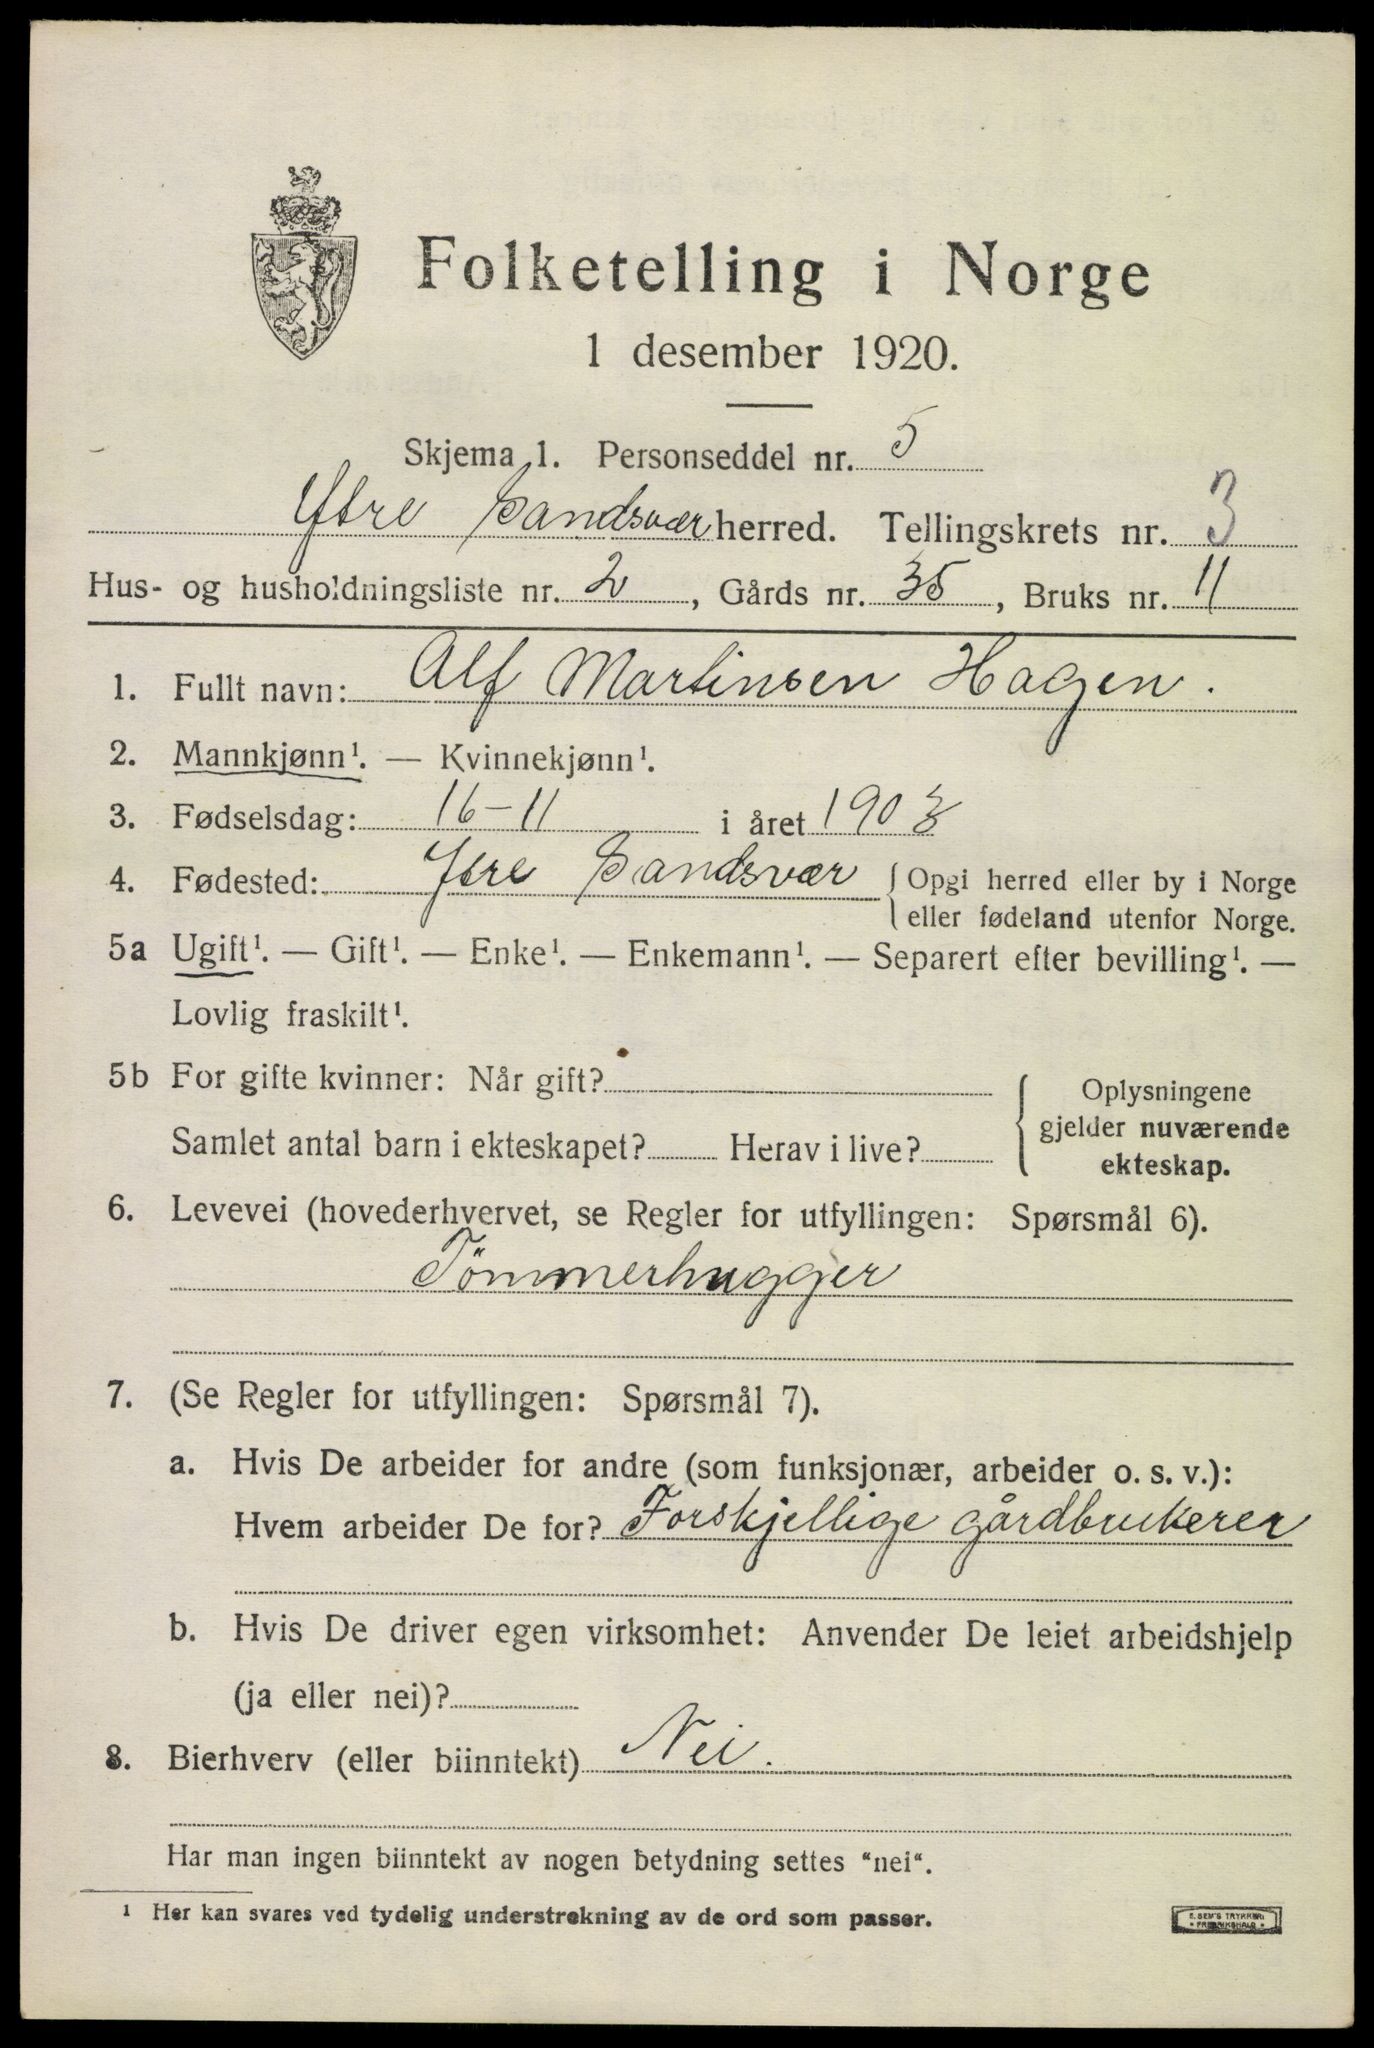 Folketelling i Norge
1 desember 1920.
Skjema 1. Personseddel nr. 5
Ytre Sandsvær herred. Tellingskrets nr. 3
Hus- og husholdningsliste nr. 2, Gårds nr. 35, Bruks nr. 11
1. Fullt navn: Alf Martinsen Hagen.
2. Mannkjønn¹. — Kvinnekjønn¹.
3. Fødselsdag: 16-11 i året 1903
4. Fødested: Ytre Sandsvær { Opgi herred eller by i Norge
eller fødeland utenfor Norge.
5a Ugift¹. — Gift¹. — Enke¹. — Enkemann¹. — Separert efter bevilling¹. —
Lovlig fraskilt¹.
5b For gifte kvinner: Når gift?
Samlet antal barn i ekteskapet? Herav i live?
Oplysningene
gjelder nuværende
ekteskap.
6. Levevei (hovederhvervet, se Regler for utfyllingen: Spørsmål 6).
Tömmerhugger
7. (Se Regler for utfyllingen: Spørsmål 7).
a. Hvis De arbeider for andre (som funksjonær, arbeider o. s. v.):
Hvem arbeider De for? Forskjellige gårdbrukerer
b. Hvis De driver egen virksomhet: Anvender De leiet arbeidshjelp
(ja eller nei)?
8. Bierhverv (eller biinntekt) Nei.
Har man ingen biinntekt av nogen betydning settes “nei“.
¹ Her kan svares ved tydelig understrekning av de ord som passer.
E. SEM'S TRYKKERI
• FREDRIKSHALD •